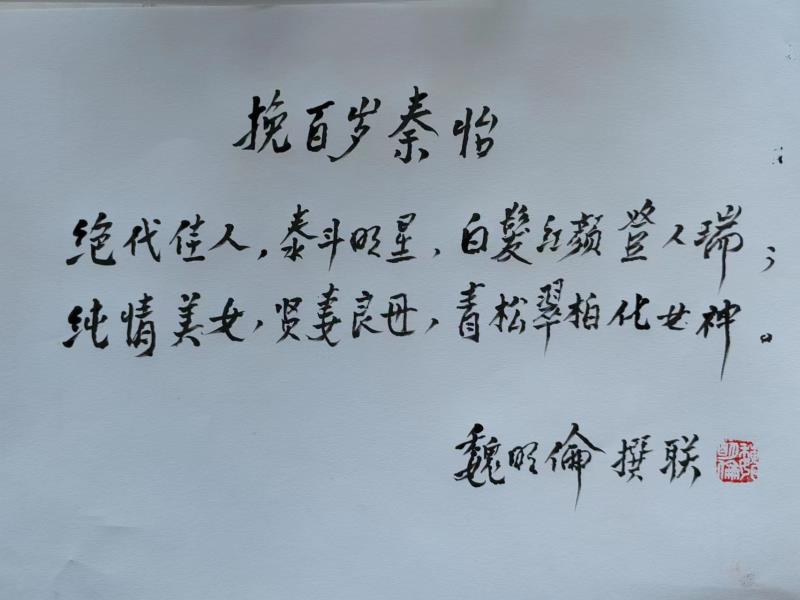 挽百岁秦怡
绝代佳人，泰斗明星，白髮红颜登人瑞；
纯情美女，贤妻良母，青松翠柏化女神。
魏明倫撰联